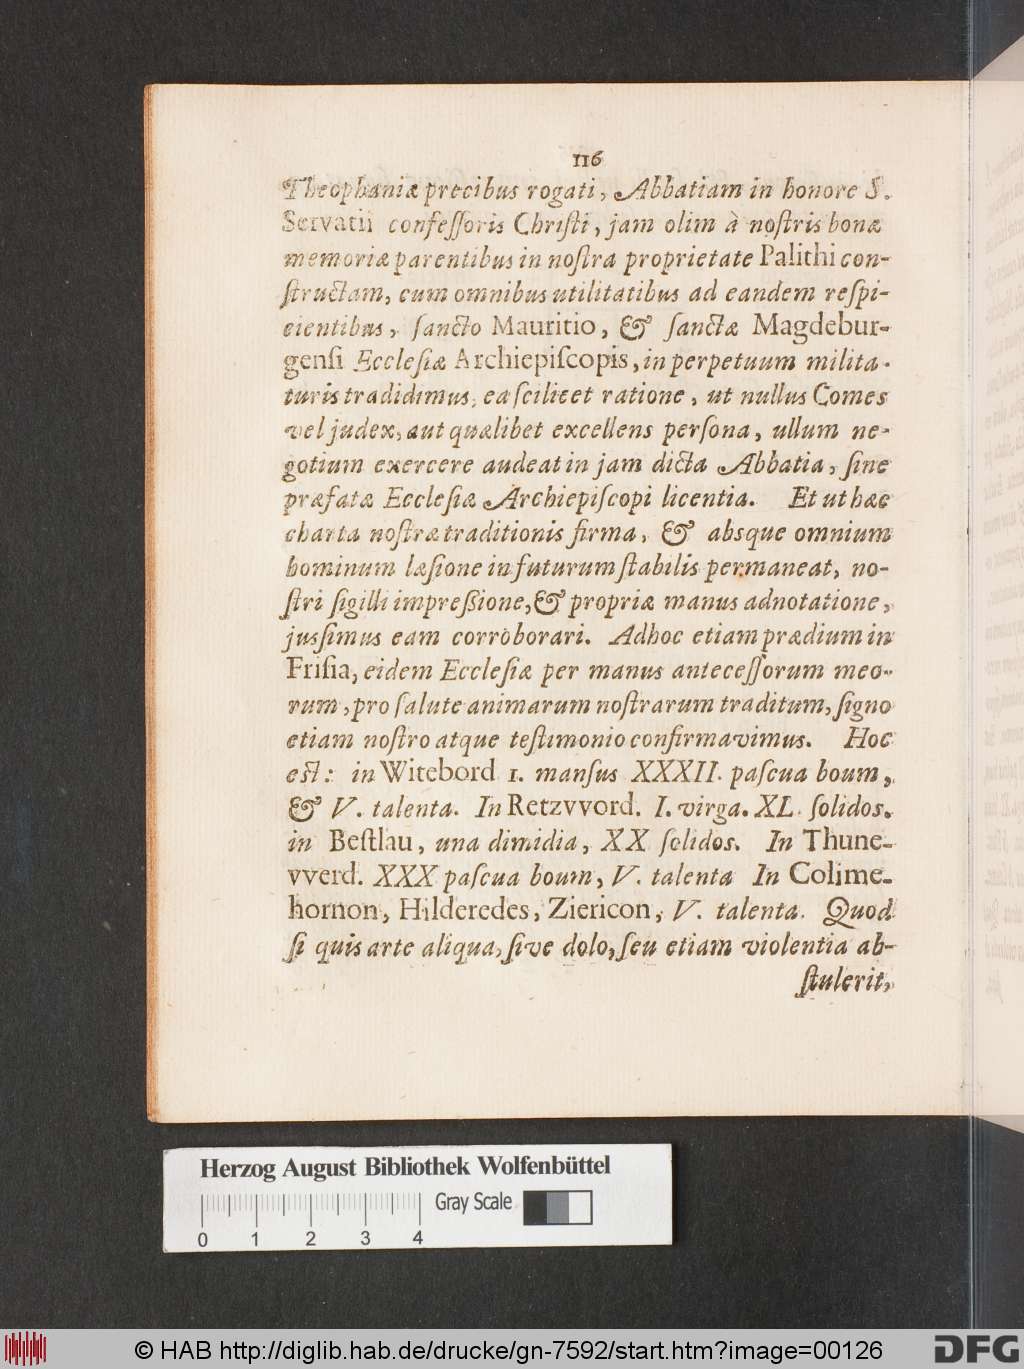 116
Theophaniæ precibus rogati, Abbatiam in honore S.
Servatii confeſſoris Chriſti, jam olim à noſtris bonæ
memoriæ parentibus in noſtra proprietate Palithi con-
ſtructam, cum omnibus utilitatibus ad eandem reſpi-
cientibus, ſancto Mauritio, & ſanctæ Magdebur-
genſi Eccleſiæ Archiepiſcopis, in perpetuum milita-
turis tradidimus, ea ſcilicet ratione, ut nullus Comes
vel judex, aut quælibet excellens perſona, ullum ne-
gotium exercere audeat in jam dicta Abbatia, ſine
præfatæ Eccleſiæ Archiepiſcopi licentia. Et ut hæc
charta noſtræ traditionis firma, & absque omnium
hominum læſione in futurum ſtabilis permaneat, no-
ſtri ſigilli impreßione, & propriæ manus adnotatione,
jusſimus eam corròborari. Adhoc etiam prædium in
Friſia, eidem Eccleſiæ per manus anteceſſorum meo-
rum, pro ſalute animarum noſtrarum traditum, ſigno
etiam noſtro atque teſtimonio confirmavimus. Hoc
eſt: in Witebord 1. manſus XXXII. paſcua boum,
& V. talenta. In Retzvvord. I. virga. XL. ſolidos.
in Beſtlau, una dimidia, XX ſolidos. In Thune-
vverd. XXX paſcua boum, V. talenta In Colime-
hornon, Hilderedes, Ziericon, V. talenta. Quod
ſi quis arte aliqua, ſive dolo, ſeu etiam violentia ab-
ſtulerit,
Herzog August Bibliothek Wolfenbüttel
Gray Scale
0 1 2 3 4
© HAB http://diglib.hab.de/drucke/gn-7592/start.htm?image=00126
DFG